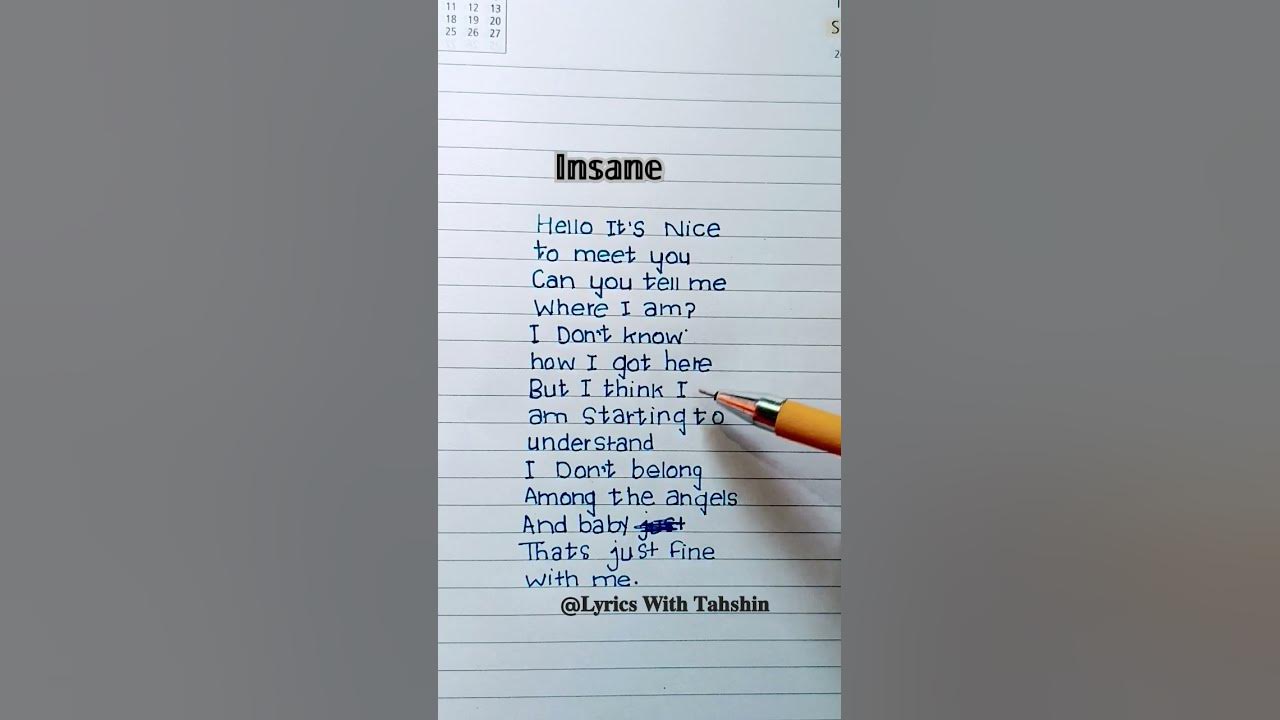 11 12 13
18 19 20
25 26 27
S
Insane
Hello It's Nice
to meet you
Can you tell me
Where I am?
I Don't know
how I got here
But I think I
am Starting to
understand
I Don't belong
Among the angels
And baby just
Thats just fine
with me.
@Lyrics With Tahshin